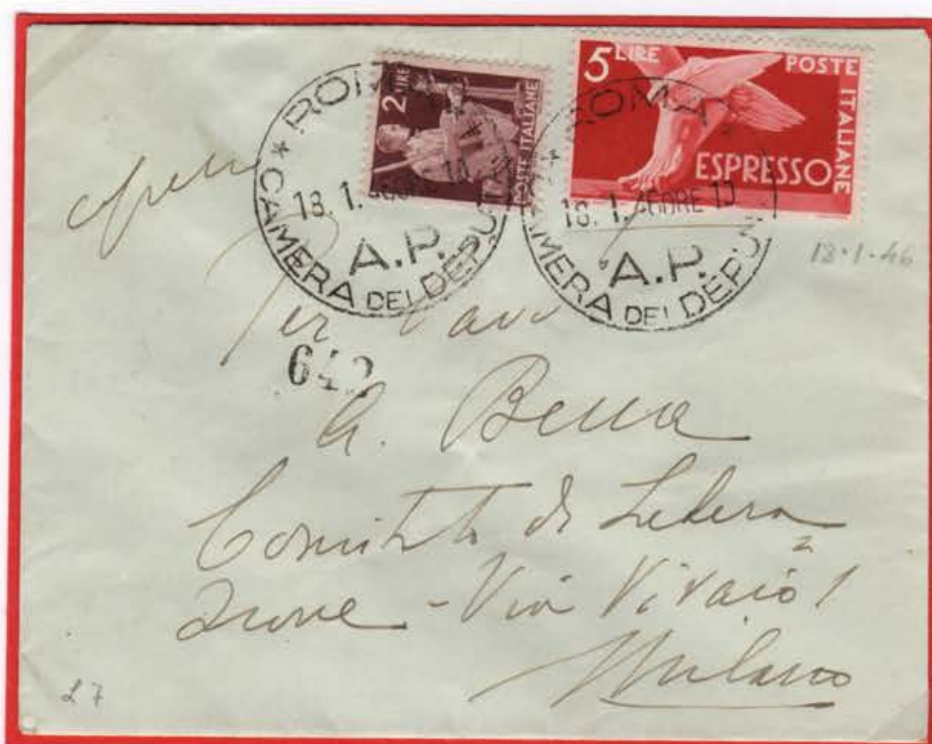 2 LIRE
POSTE ITALIANE
5 LIRE POSTE ITALIANE
ESPRESSO
* ROMA *
CAMERA DEI DEPUTATI
18.1.46 ORE 10
A.P.
ROMA
CAMERA DEI DEPU
18.1.46 ORE 10
A.P.
18-1-46
Per
642
Becca
Comitato di Libera
zione - Via Vivaio 1
Milano